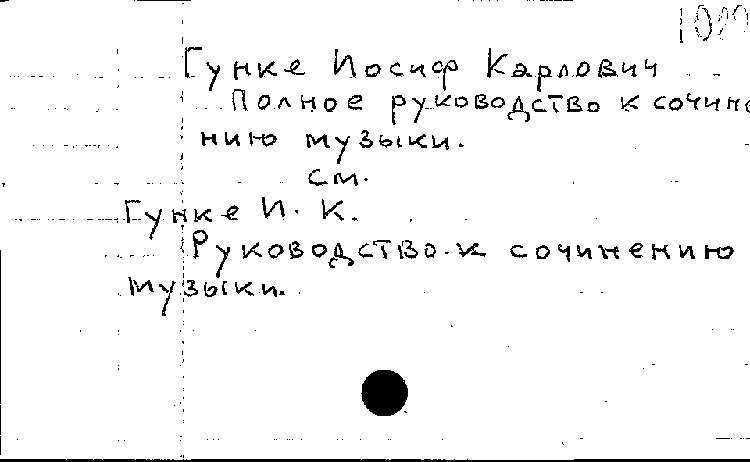 Гунке Иосиф Карлович
Полное руководство к сочине
нию музыки.
см.
Гунке И. К.
Руководство к сочинению
музыки.